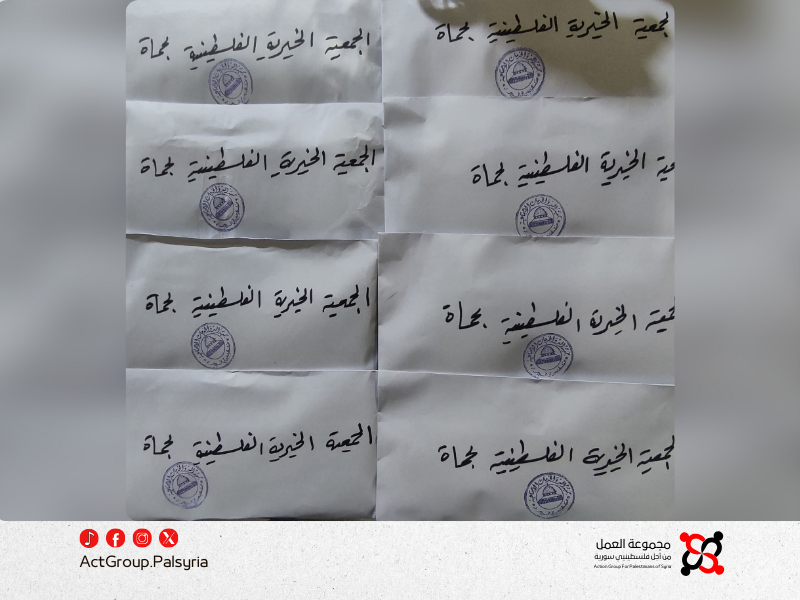 الجمعية الخيرية الفلسطينية بحماة
لجمعية الخيرية الفلسطينية بحماة
الجمعية الخيرية الفلسطينية بحماة
عية الخيرية الفلسطينية بحماة
الجمعية الخيرية الفلسطينية بحماة
جمعية الخيرية الفلسطينية بحماة
الجمعية الخيرية الفلسطينية بحماة
لجمعية الخيرية الفلسطينية بحماة
ActGroup.Palsyria
مجموعة العمل
من أجل فلسطينيي سورية
Action Group For Palestinians of Syria